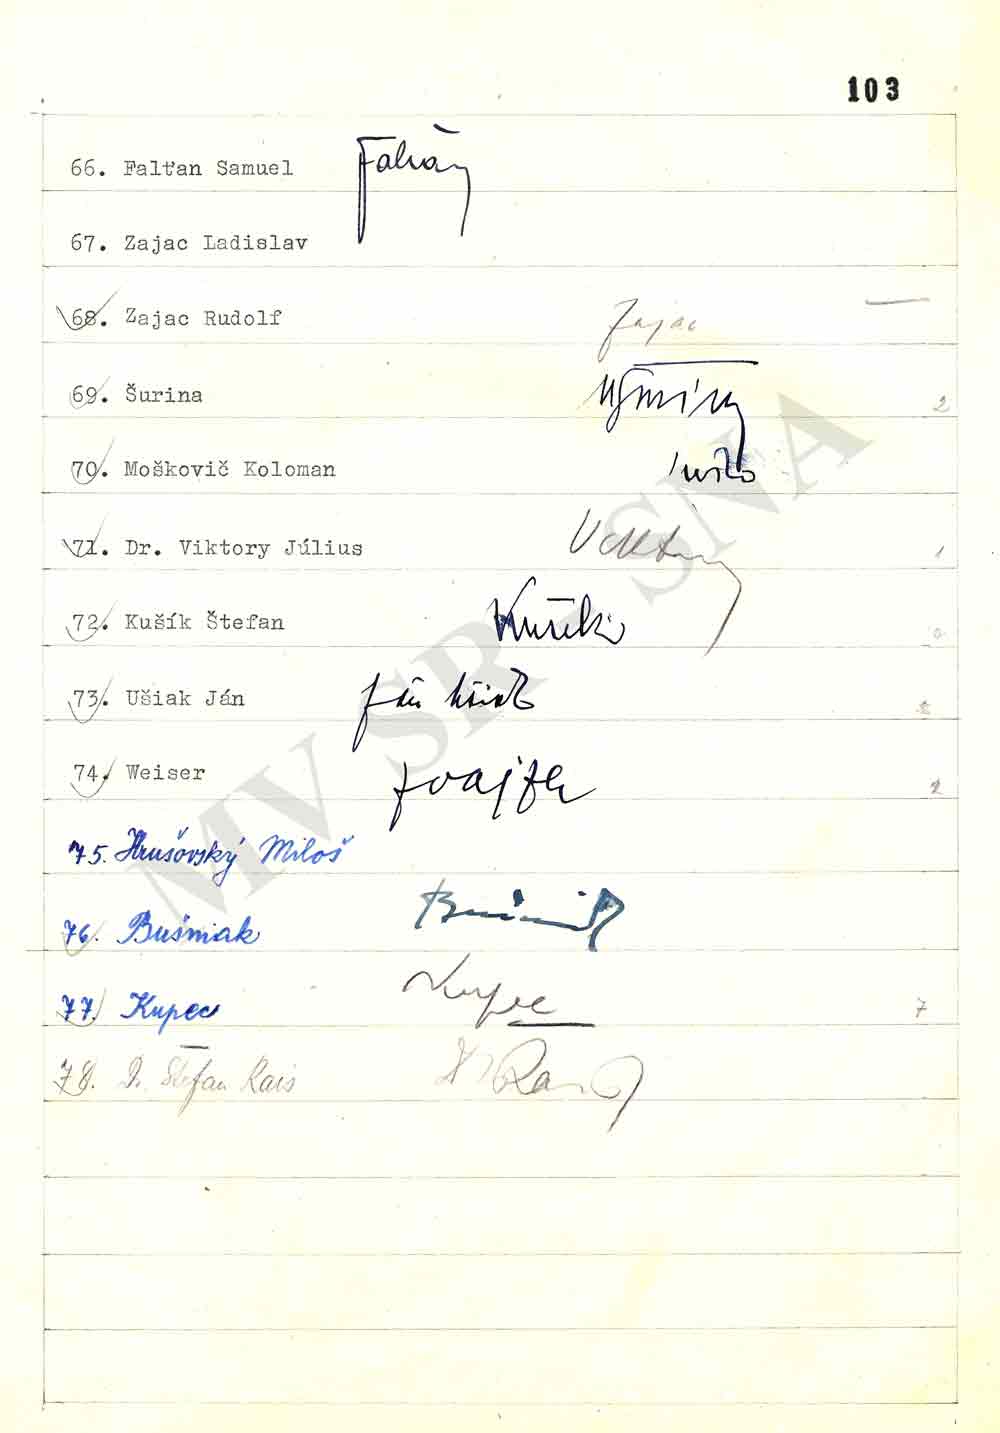 103
66. Falťan Samuel Falťan
67. Zajac Ladislav
68. Zajac Rudolf Zajac
69. Šurina 2
70. Moškovič Koloman
71. Dr. Viktory Július Viktory 1
72. Kušík Štefan Kušík
73. Ušiak Ján Ján Ušiak
74. Weiser 2
75. Hrušovský Miloš
76. Bušniak Bušniak
77. Kupec Kupec 7
78. D. Štefan Rais Rais
MV SR - SNA